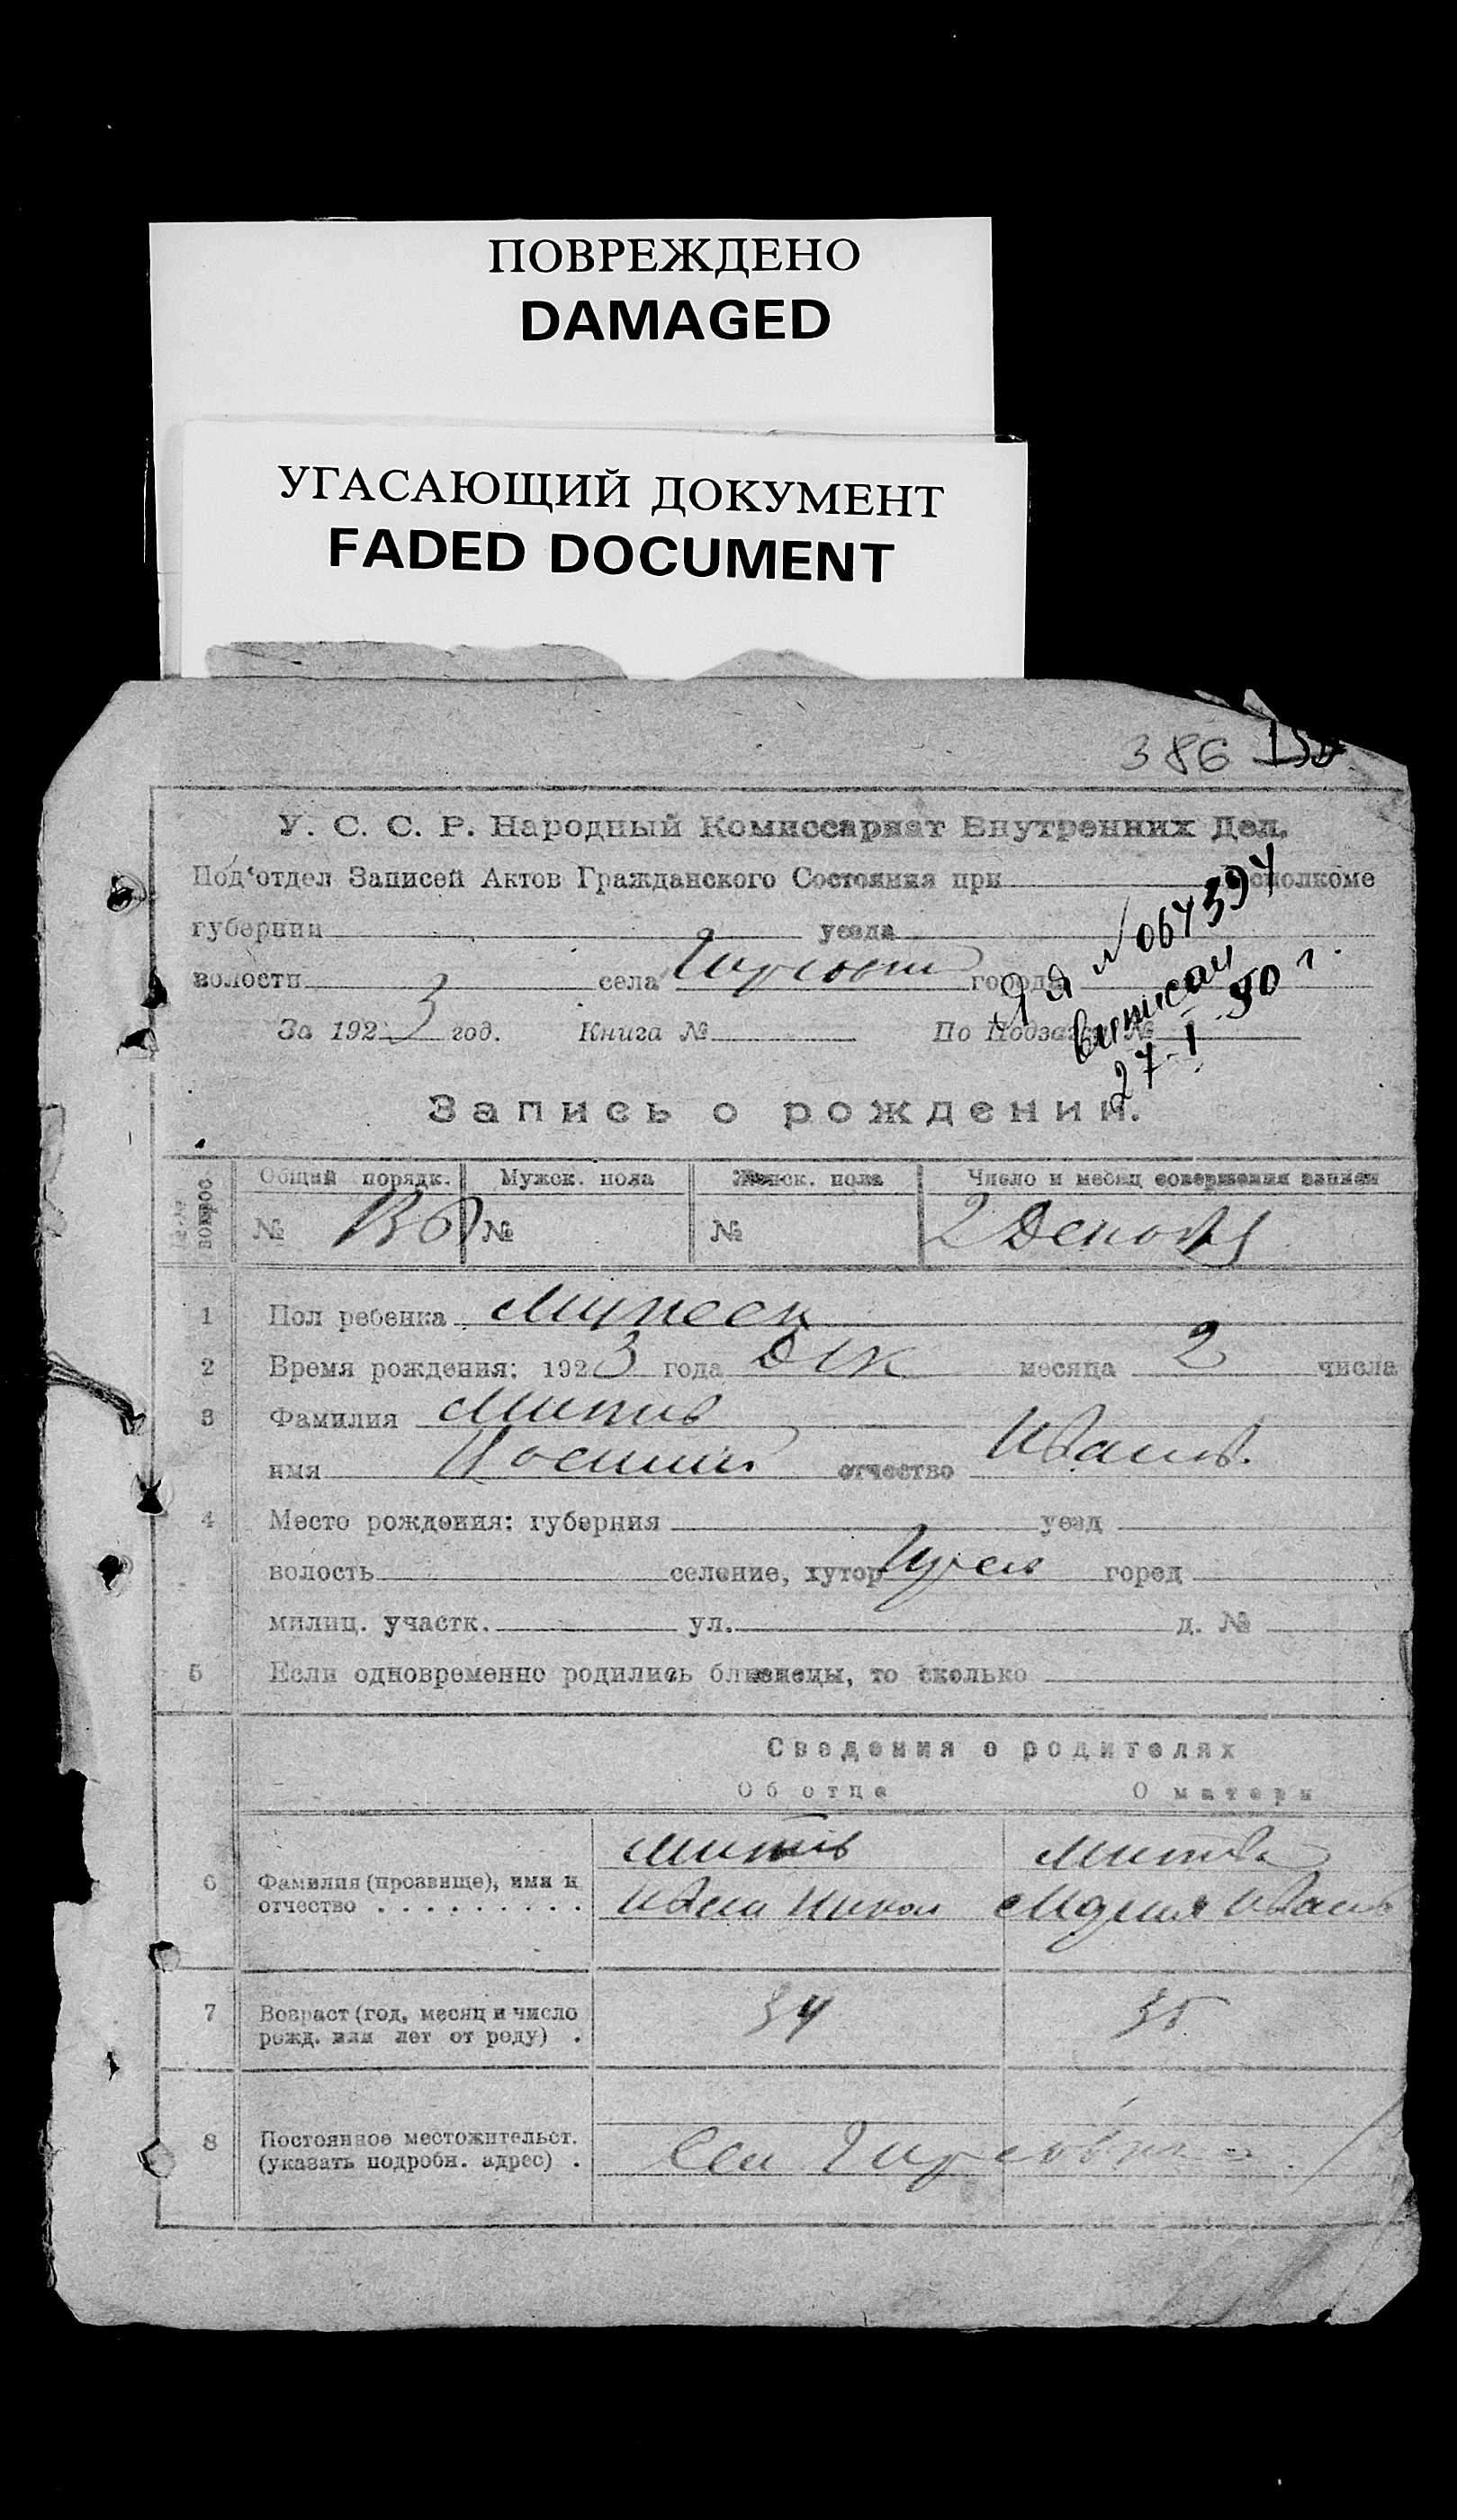 ПОВРЕЖДЕНО
DAMAGED
УГАСАЮЩИЙ ДОКУМЕНТ
FADED DOCUMENT
386
У. С. С. Р. Народный Комиссариат Внутренних Дел.
Под‘отдел Записей Актов Гражданского Состояния при сполкоме
губернии уезда
волости села города
За 1923 год. Книга № По Подзаг №
Я я № 064394
выписан
27-I 50 г.
Запись о рождении.
№№ вопрос. Общий порядк. Мужск. пола Женск. пола Число и месяц совершения записи
№ № № 2 Декабря
1 Пол ребенка Мужеск
2 Время рождения: 1923 года Дек месяца 2 числа
3 Фамилия Митов
имя отчество Иванов.
4 Место рождения: губерния уезд
волость селение, хутор город
милиц. участк. ул. д. №
5 Если одновременно родились близнецы, то сколько
Сведения о родителях
Об отце О матери
Митов Митова
6 Фамилия (прозвище), имя и
отчество . . . . . . . . . Иван Никол Мария Иванов
7 Возраст (год, месяц и число
рожд. или лет от роду) . 34 35
8 Постоянное местожительст.
(указать подробн. адрес) . Сел